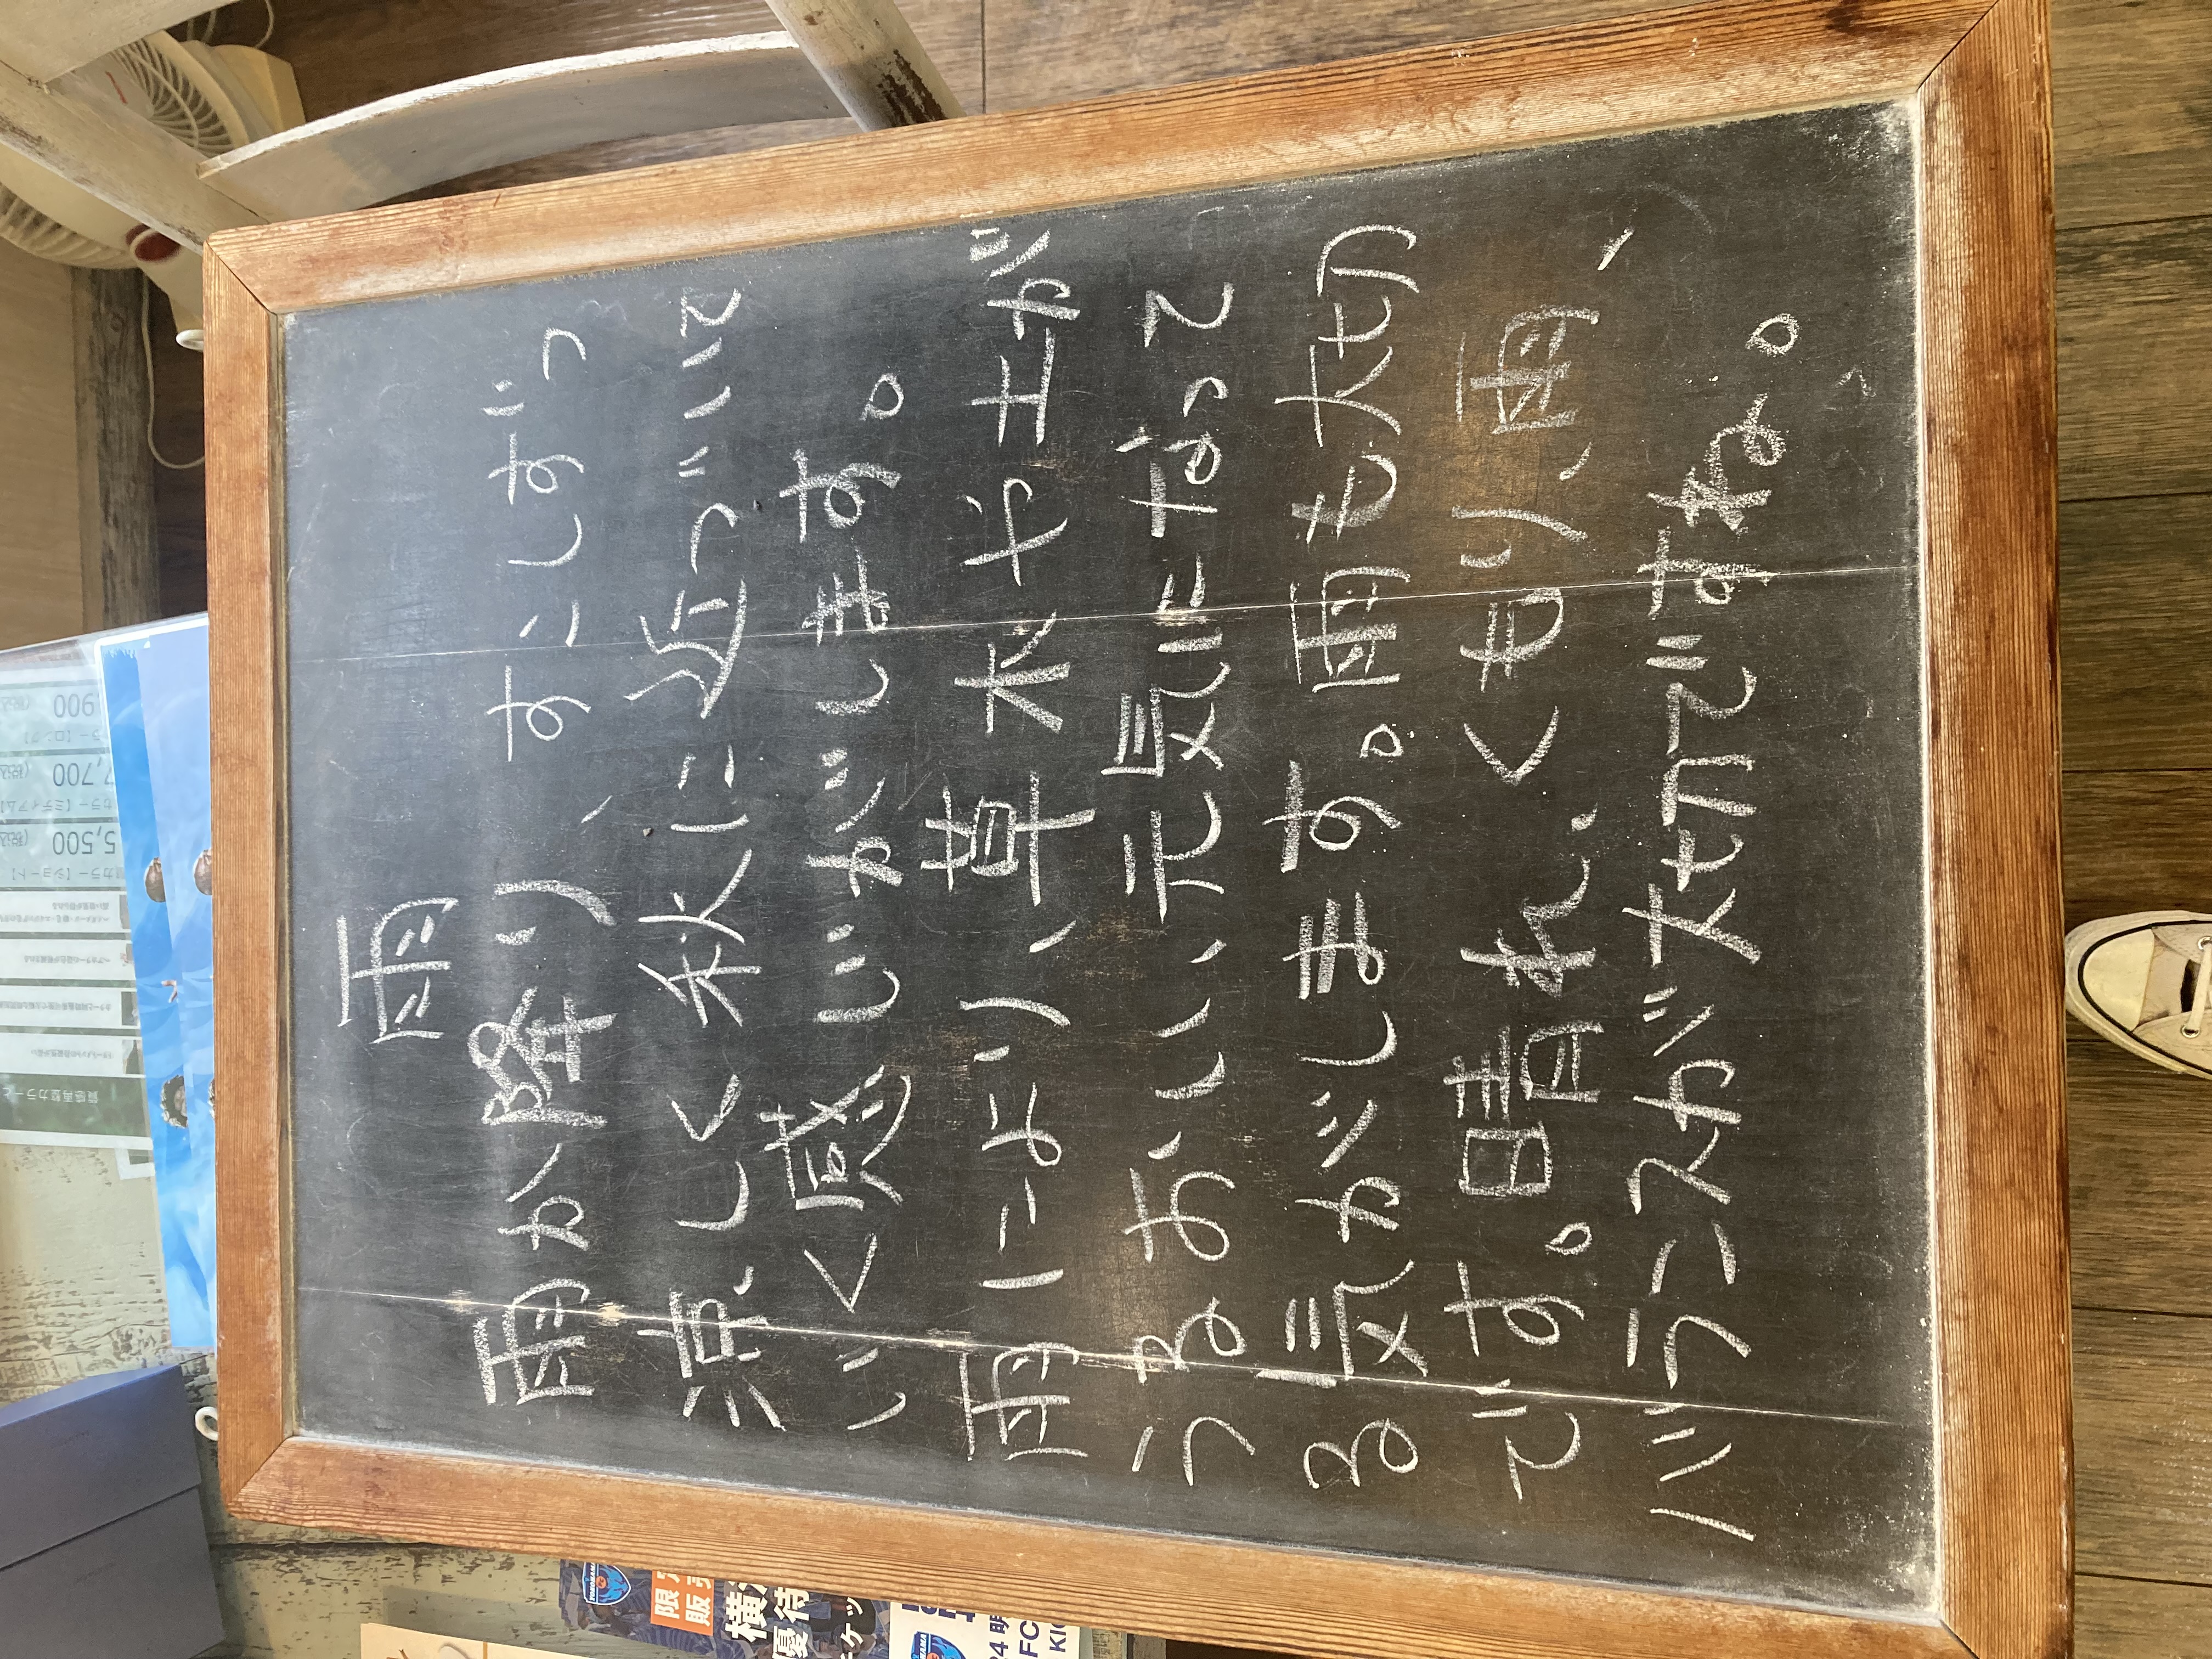 雨
雨か降り、すこしずつ
涼しく秋に近づいて
いく感じがします。
雨により、草木や土が
うるおい、元気になって
る気がします。雨も大切
です。晴れ、くもり、雨、
バランスが大切ですね。
カラー【ショート】
5,500 (税込)
7,700 (税込)
900 (税込)
優待
FC